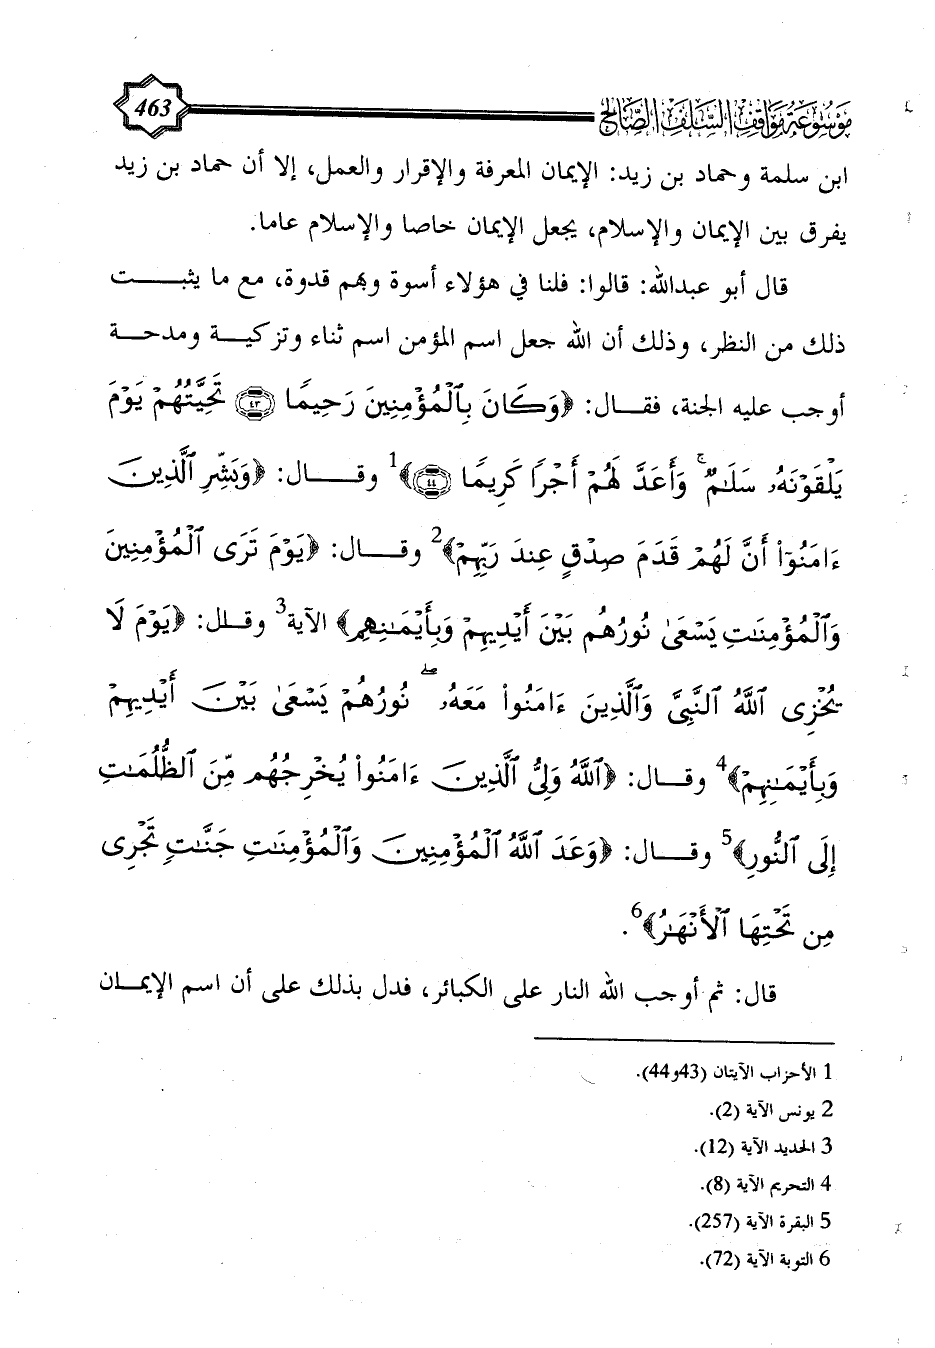 موسوعة مواقف السلف الصالح 463
ابن سلمة وحماد بن زيد: الإيمان المعرفة والإقرار والعمل، إلا أن حماد بن زيد
يفرق بين الإيمان والإسلام، يجعل الإيمان خاصا والإسلام عاما.
قال أبو عبدالله: قالوا: فلنا في هؤلاء أسوة وبهم قدوة، مع ما يثبت
ذلك من النظر، وذلك أن الله جعل اسم المؤمن اسم ثناء وتزكية ومدحة
أوجب عليه الجنة، فقال: ﴿وَكَانَ بِٱلْمُؤْمِنِينَ رَحِيمًا ٤٣ تَحِيَّتُهُمْ يَوْمَ
يَلْقَوْنَهُۥ سَلَـٰمٌ ۚ وَأَعَدَّ لَهُمْ أَجْرًا كَرِيمًا ٤٤﴾1 وقال: ﴿وَبَشِّرِ ٱلَّذِينَ
ءَامَنُوٓا۟ أَنَّ لَهُمْ قَدَمَ صِدْقٍ عِندَ رَبِّهِمْ﴾2 وقال: ﴿يَوْمَ تَرَى ٱلْمُؤْمِنِينَ
وَٱلْمُؤْمِنَـٰتِ يَسْعَىٰ نُورُهُم بَيْنَ أَيْدِيهِمْ وَبِأَيْمَـٰنِهِم﴾ الآية3 وقال: ﴿يَوْمَ لَا
يُخْزِى ٱللَّهُ ٱلنَّبِىَّ وَٱلَّذِينَ ءَامَنُوا۟ مَعَهُۥ ۖ نُورُهُمْ يَسْعَىٰ بَيْنَ أَيْدِيهِمْ
وَبِأَيْمَـٰنِهِمْ﴾4 وقال: ﴿ٱللَّهُ وَلِىُّ ٱلَّذِينَ ءَامَنُوا۟ يُخْرِجُهُم مِّنَ ٱلظُّلُمَـٰتِ
إِلَى ٱلنُّورِ﴾5 وقال: ﴿وَعَدَ ٱللَّهُ ٱلْمُؤْمِنِينَ وَٱلْمُؤْمِنَـٰتِ جَنَّـٰتٍ تَجْرِى
مِن تَحْتِهَا ٱلْأَنْهَـٰرُ﴾6.
قال: ثم أوجب الله النار على الكبائر، فدل بذلك على أن اسم الإيمان
1 الأحزاب الآيتان (43و44).
2 يونس الآية (2).
3 الحديد الآية (12).
4 التحريم الآية (8).
5 البقرة الآية (257).
6 التوبة الآية (72).